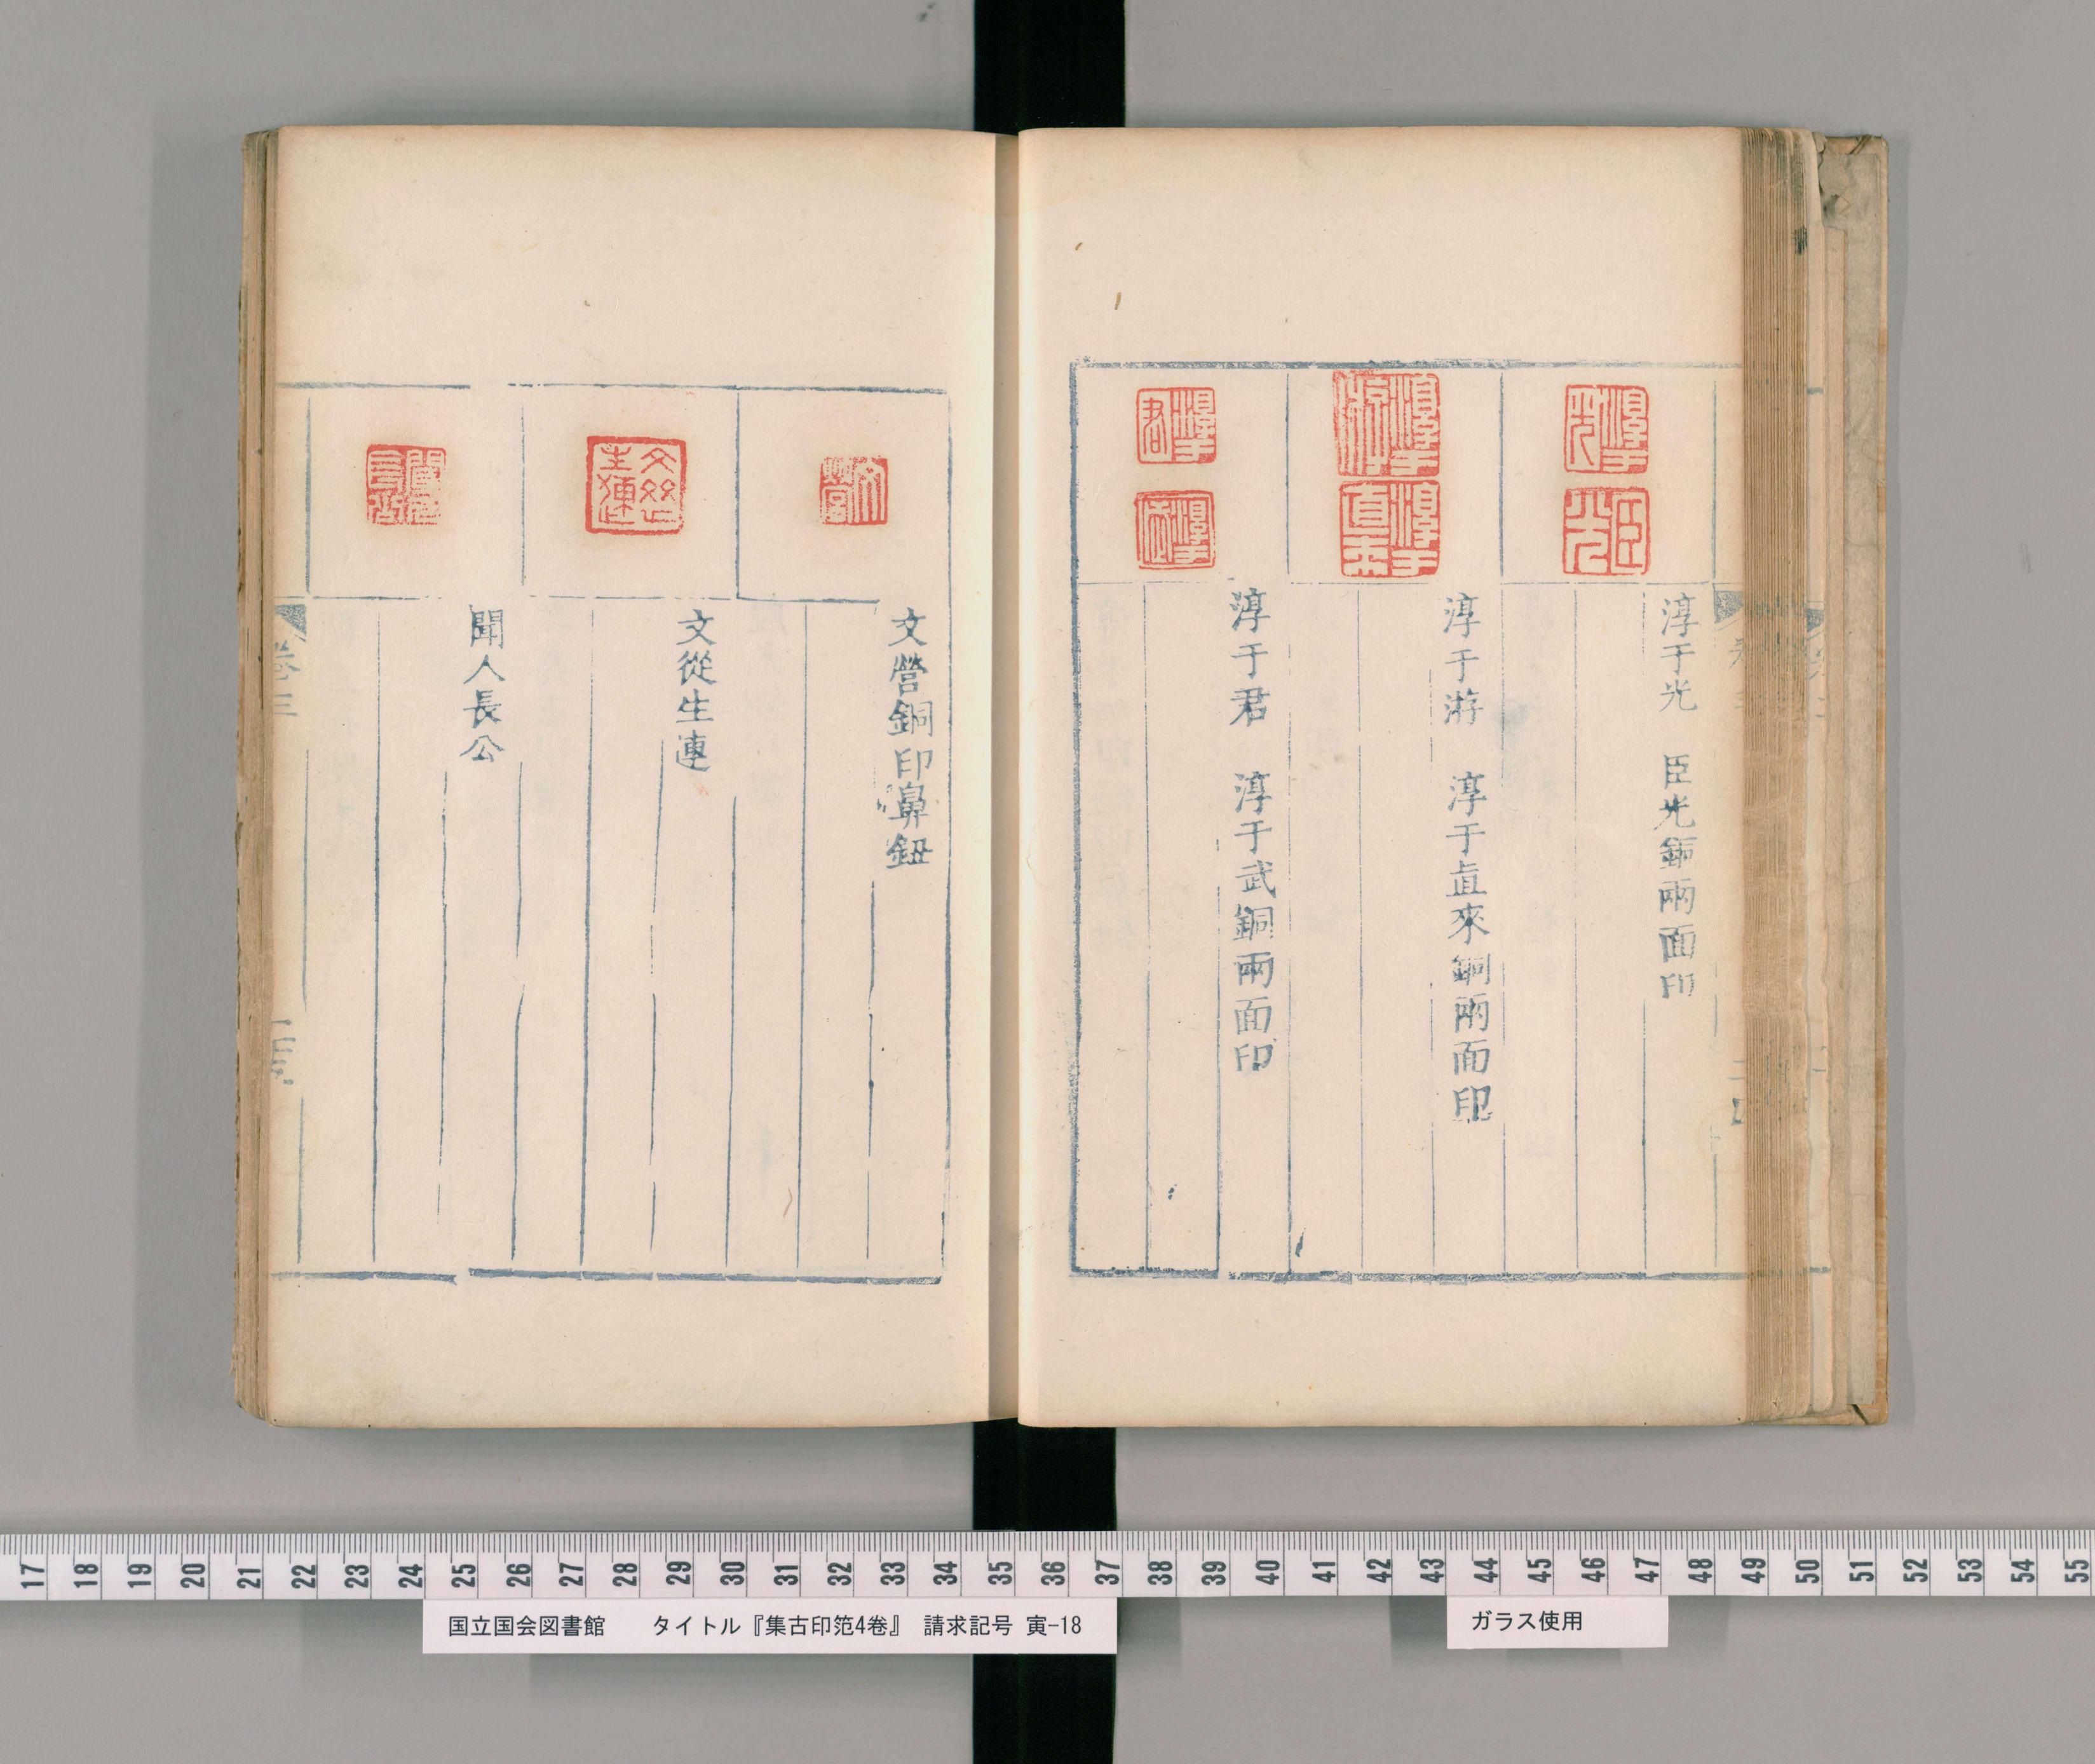 淳于光　臣光銅兩面印
淳于游　淳于直來銅兩面印
淳于君　淳于武銅兩面印
文營銅印鼻鈕
文從生連
聞人長公
卷三
17 18 19 20 21 22 23 24 25 26 27 28 29 30 31 32 33 34 35 36 37 38 39 40 41 42 43 44 45 46 47 48 49 50 51 52 53 54 55
国立国会図書館　タイトル『集古印笵4巻』　請求記号 寅-18
ガラス使用